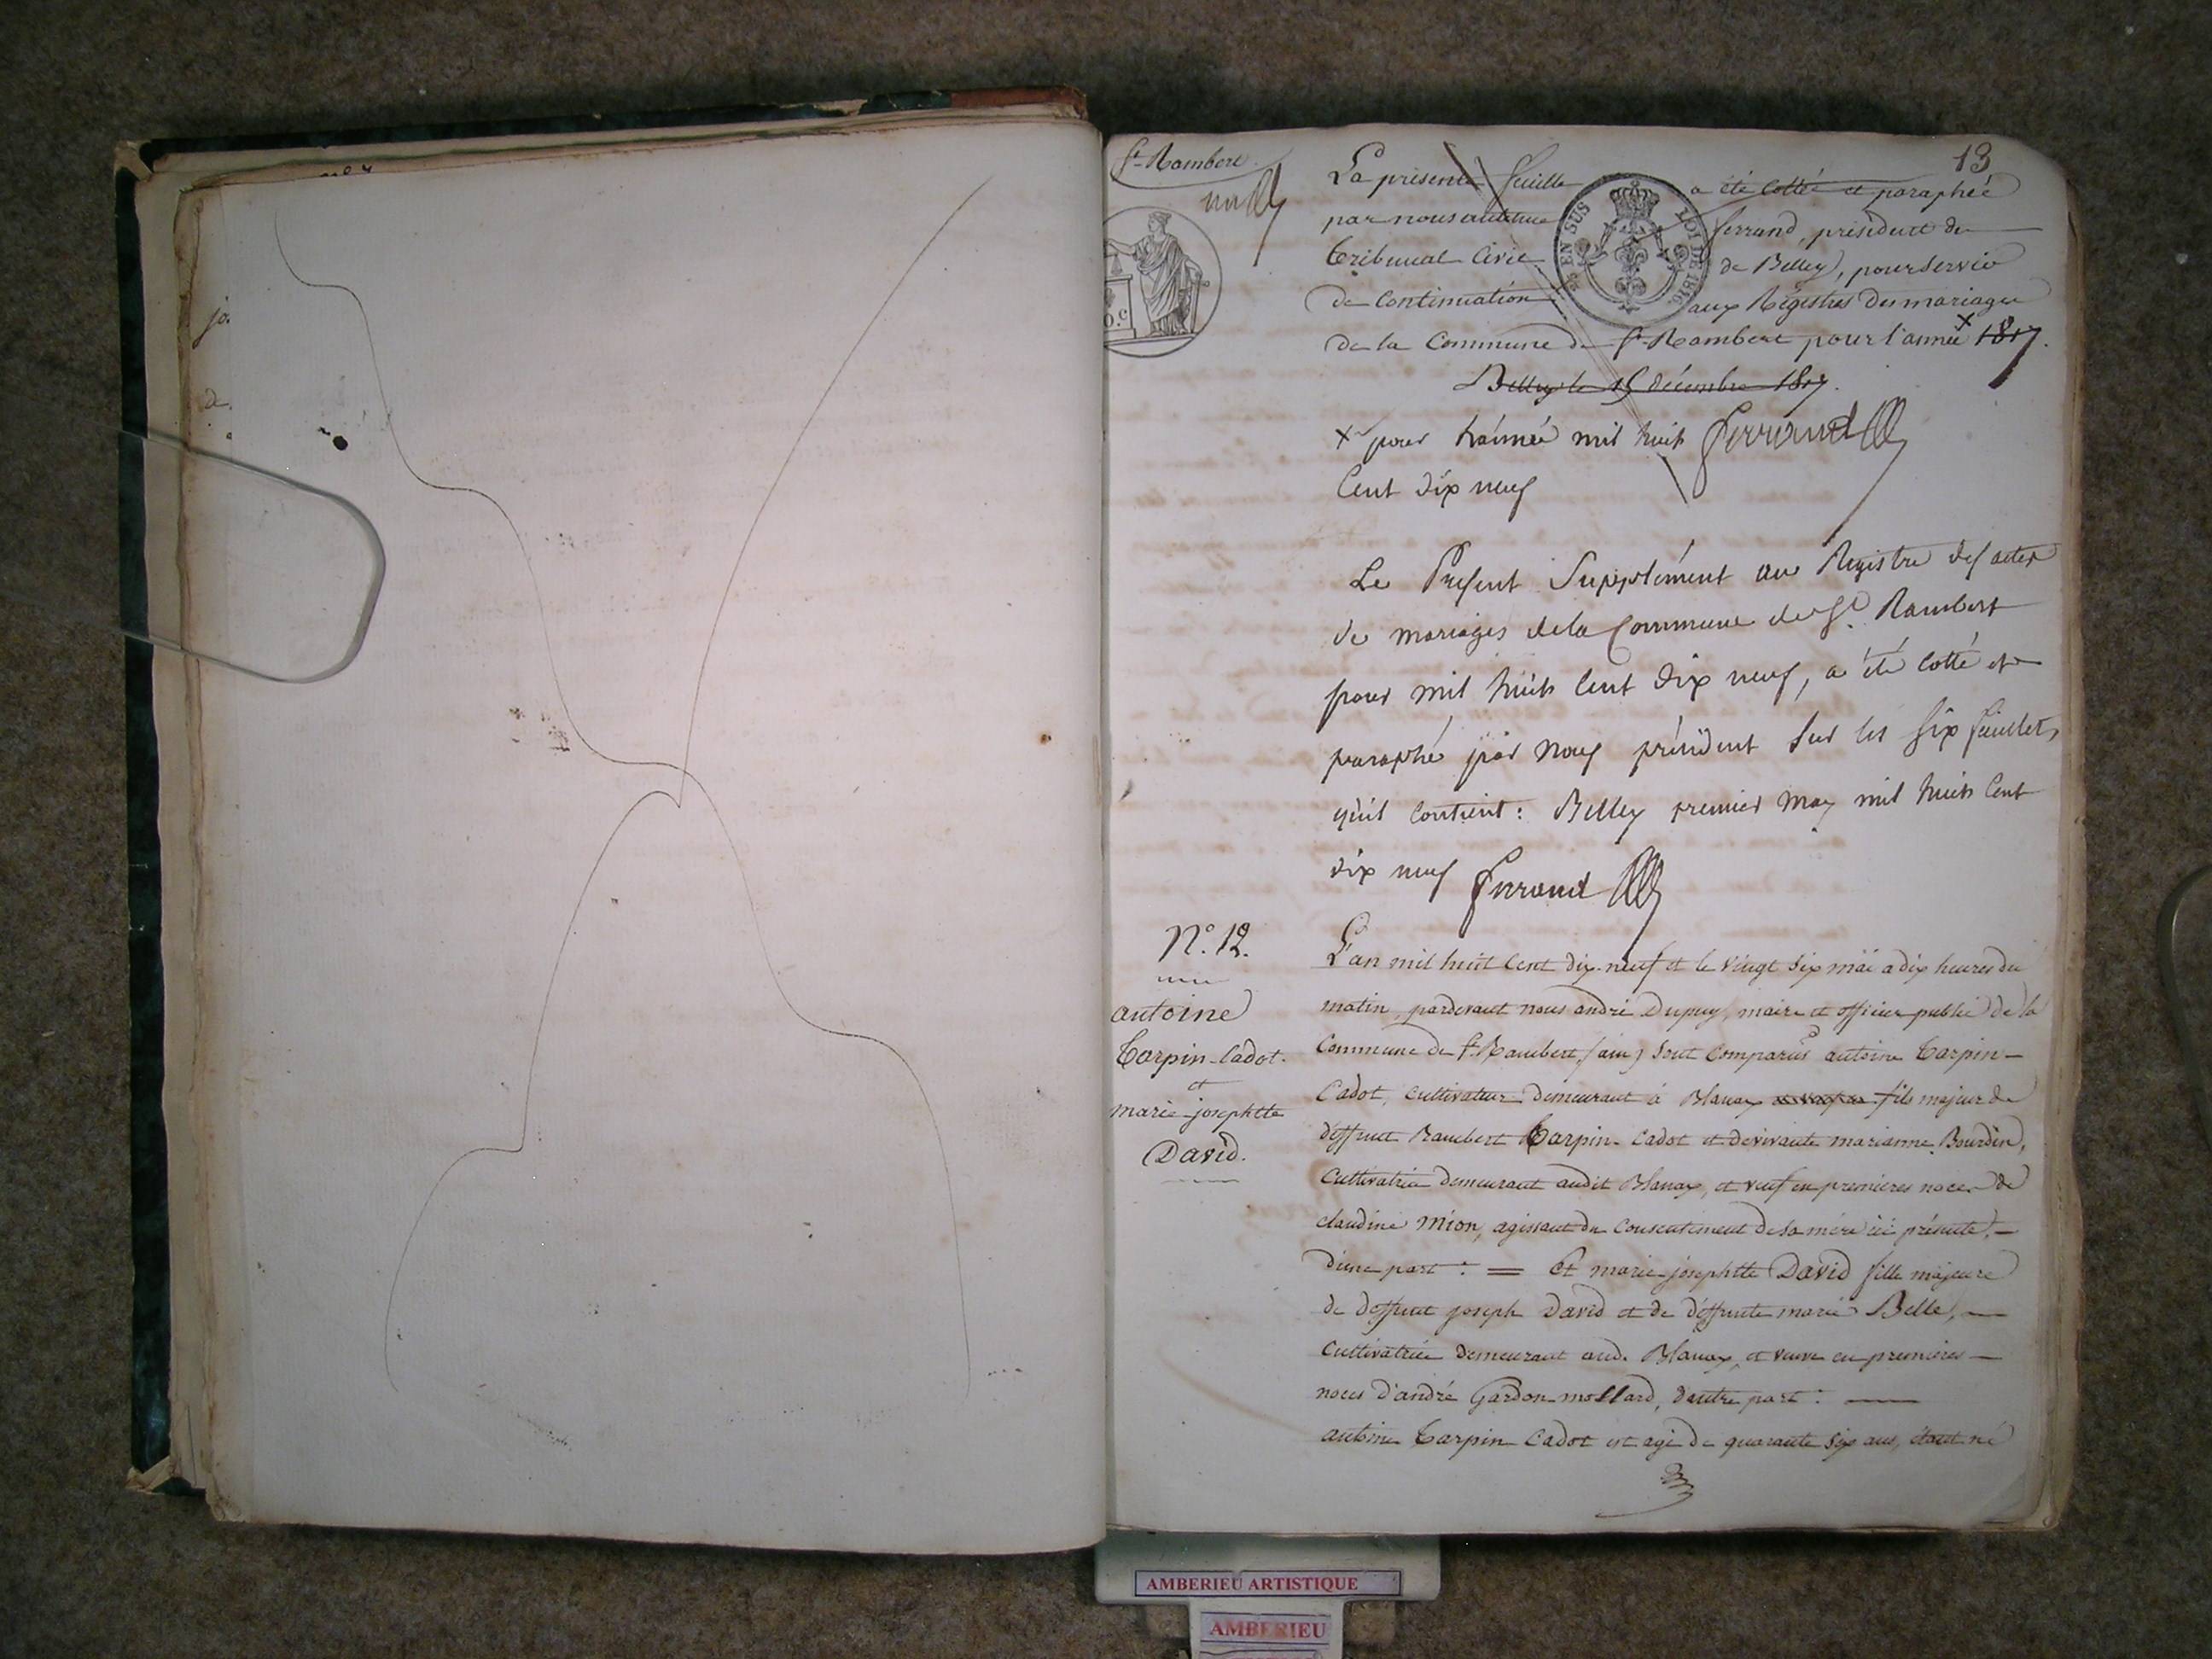 jo.
de.
St. Rambert
13
La présente feuille a été cottée et paraphée
par nous antoine ferrand, président du
tribunal Civil de Belley, pour servir
de Continuation aux Régistres des mariages
de la Commune de St. Rambert pour l'année x 1817.
Belley le 15 décembre 1817.
x pour l'année mil huit ferrand
Cent dix neuf
EN SUS
LOI DE 1816
0.c
Le Présent Supplément au Registre des actes
de mariages de la Commune de St. Rambert
pour mil huit Cent dix neuf, a été cotté et
paraphé par nous président sur les six feuillets
qu'il contient : Belley premier may mil huit Cent
dix neuf ferrand
N.o 12.
antoine
Tarpin-Cadot.
et
marie-josephtte
David.
L'an mil huit Cent dix-neuf et le vingt six mai a dix heures du
matin, pardevant nous andré Dupuy, maire et officier public de la
Commune de St. Rambert, (ain) sont comparus antoine Tarpin-
Cadot, cultivateur demeurant à Blanax fils majeur de
deffunt Rambert Tarpin-Cadot et de vivante marianne Bourdin,
Cultivatrice demeurant audit Blanax, et veuf en premieres noces de
claudine Mion, agissant du consentement de sa mère ici présente, -
d'une part : = Et marie-josephtte David fille majeure
de deffunt joseph David et de deffunte marie Belle, -
Cultivatrice demeurant aud. Blanax, et veuve en premieres -
noces d'andré Gardon-mollard, d'autre part : -
antoine Tarpin Cadot est agé de quarante six ans, étant né
AMBERIEU ARTISTIQUE
AMBERIEU